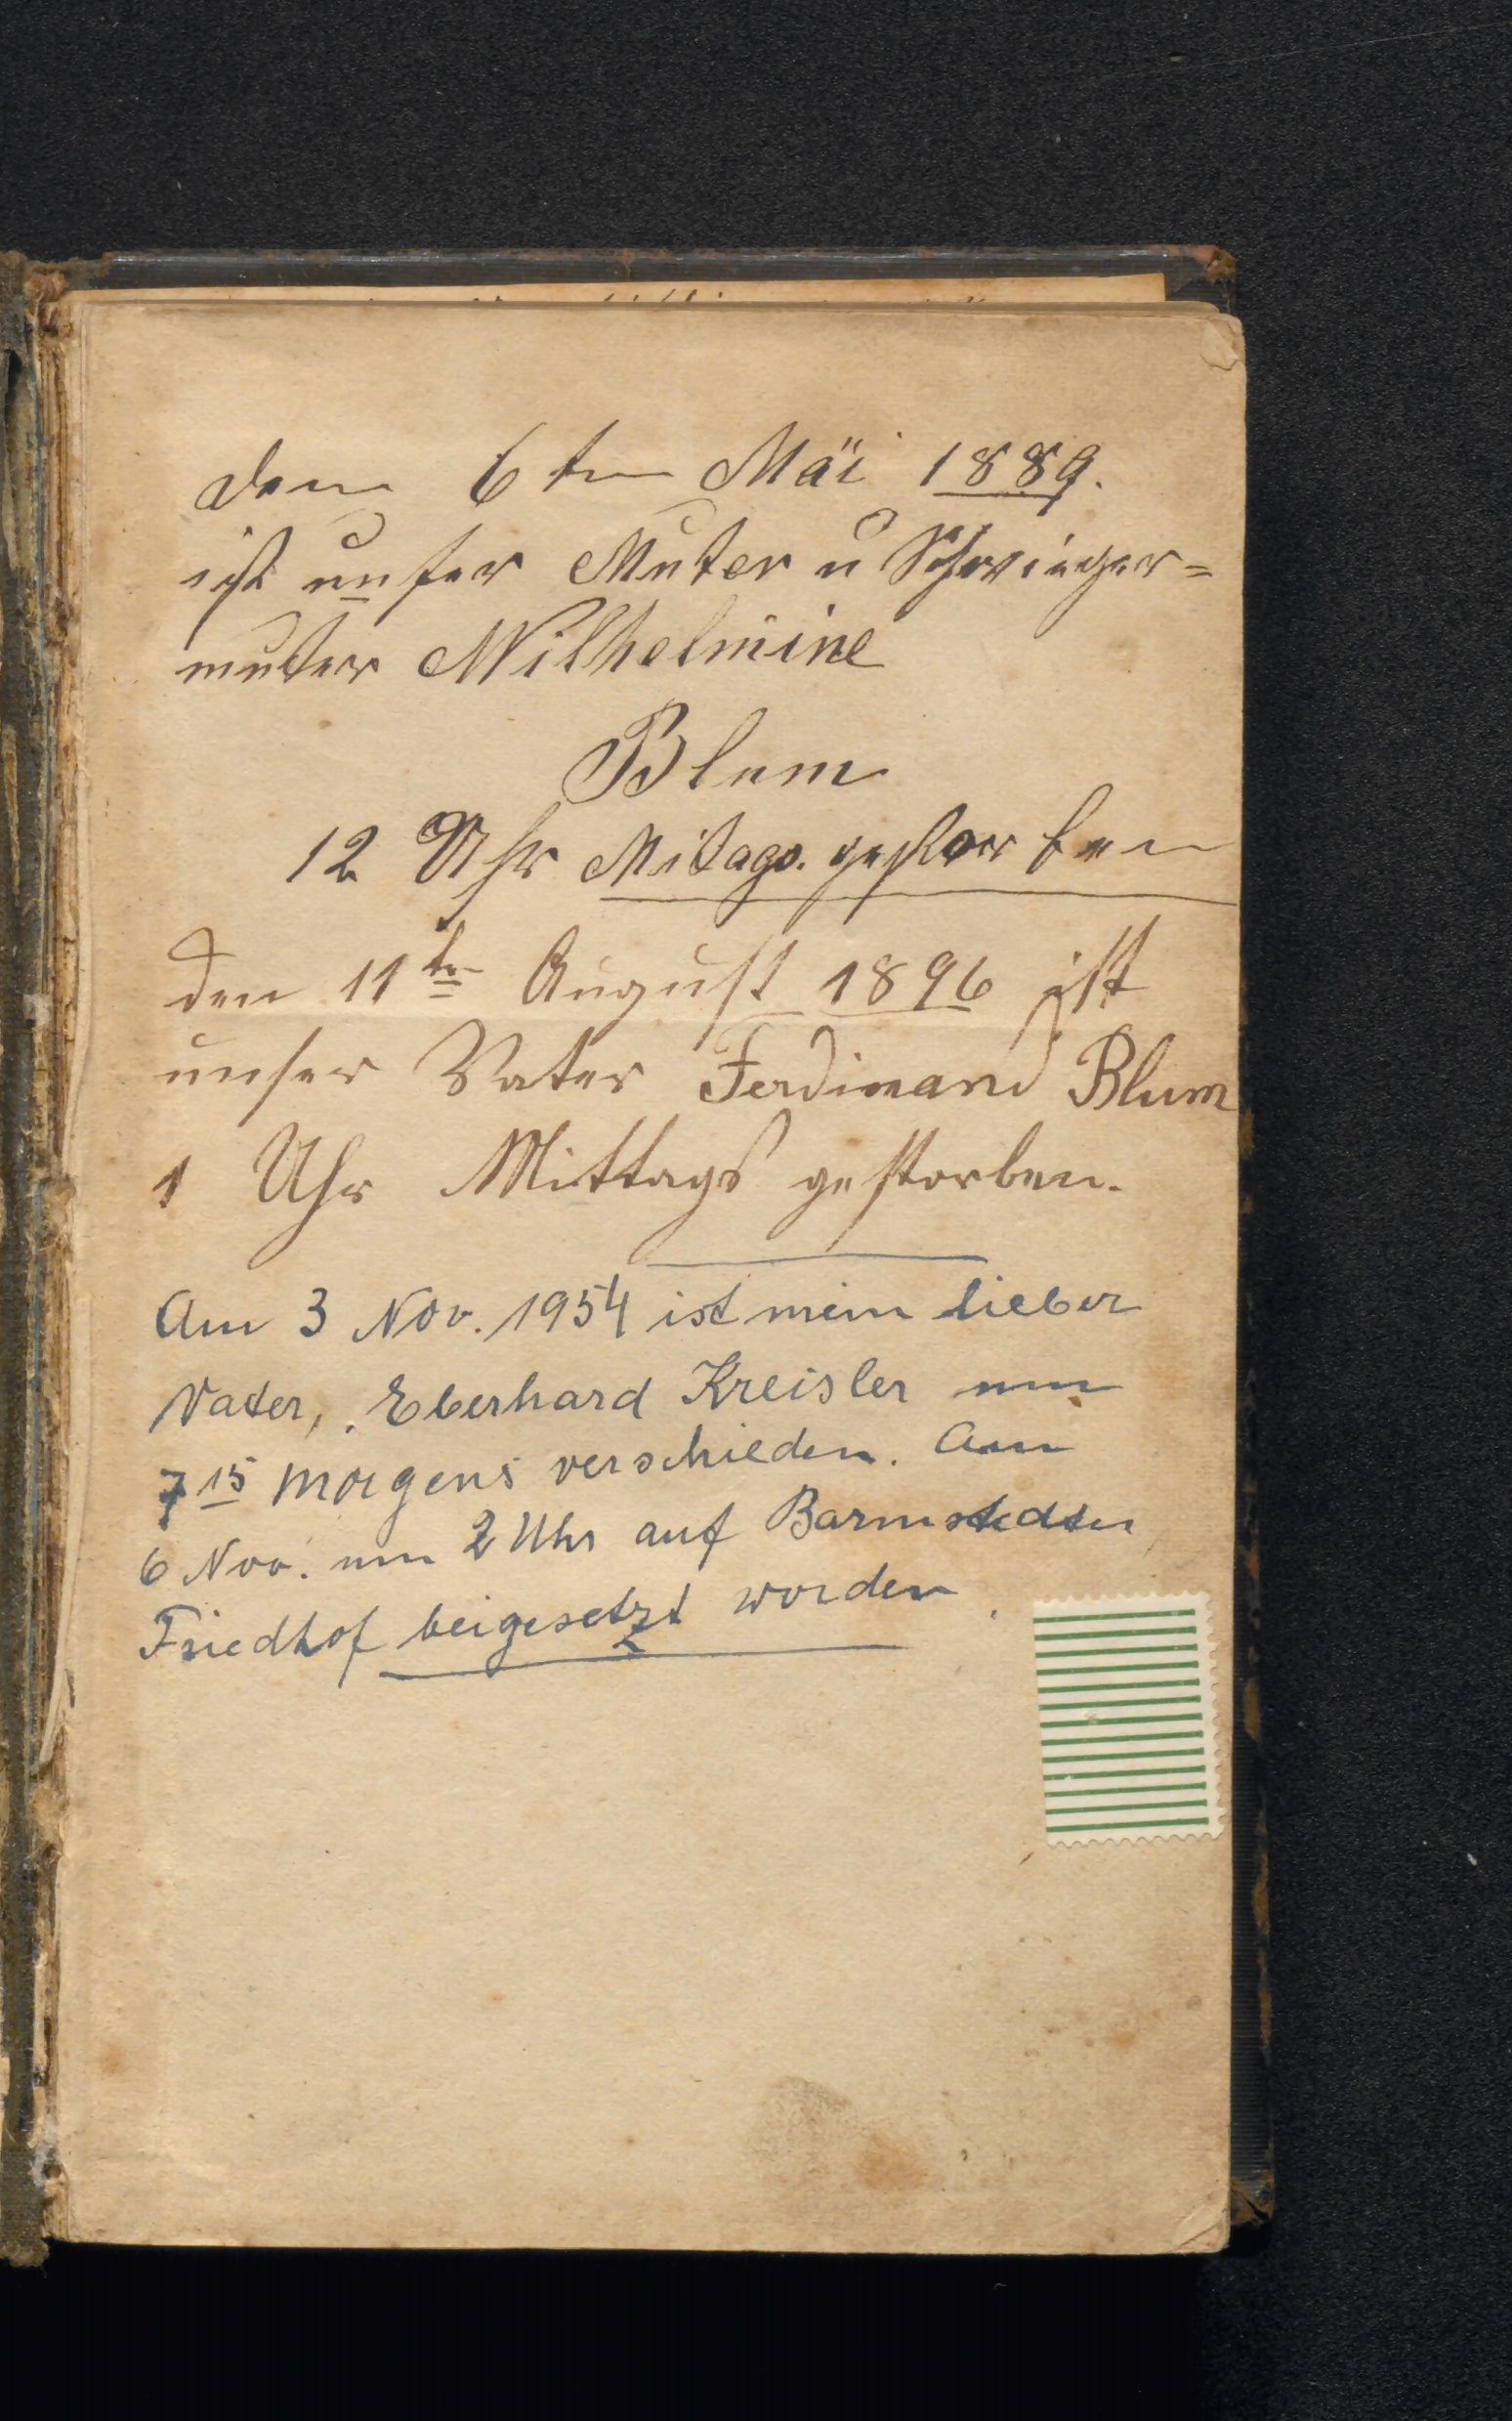 den 6ten Mäi 1889.
ist unser Muter u Schwieger=
muter Wilhelmine
Blum
12 Uhr Mitags. gestorben
den 11ten August 1896 ist
unser Vater Ferdinand Blum
1 Uhr Mittags gestorben.
Am 3 Nov. 1954 ist mein lieber
Vater, Eberhard Kreisler um
7 15 morgens verschieden. Am
6 Nov. um 2 Uhr auf Barmstedter
Friedhof beigesetzt worden.